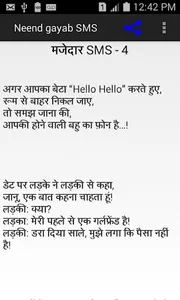 12:42 PM
Neend gayab SMS
मजेदार SMS - 4
अगर आपका बेटा “Hello Hello” करते हुए,
रूम से बाहर निकल जाए,
तो समझ जाना की,
आपकी होने वाली बहु का फ़ोन है...!
डेट पर लड़के ने लड़की से कहा,
जानू, एक बात कहना चाहता हूं!
लड़की: क्या?
लड़का: मेरी पहले से एक गर्लफ्रेंड है!
लड़की: डरा दिया साले, मुझे लगा कि पैसा नहीं
है!